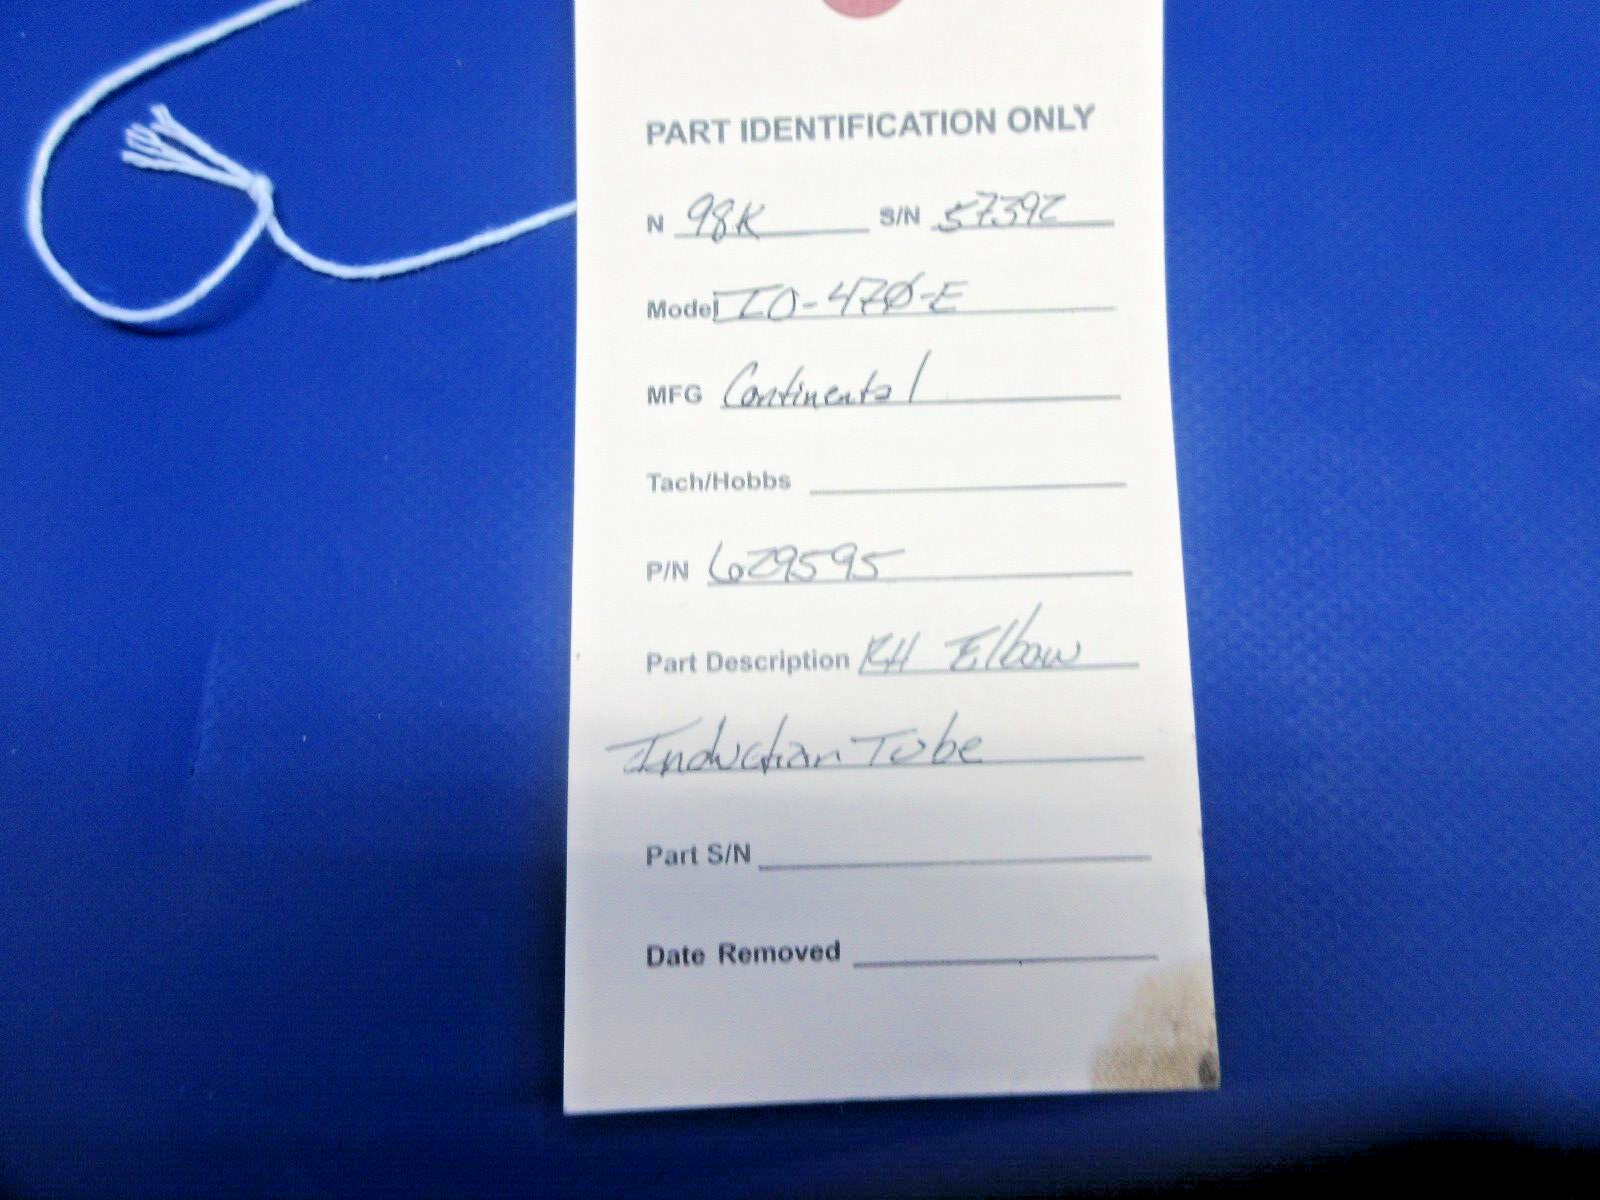 PART IDENTIFICATION ONLY
N 98K S/N 57392
Model IO-470-E
MFG Continental
Tach/Hobbs
P/N 629595
Part Description RH Elbow
Induction Tube
Part S/N
Date Removed